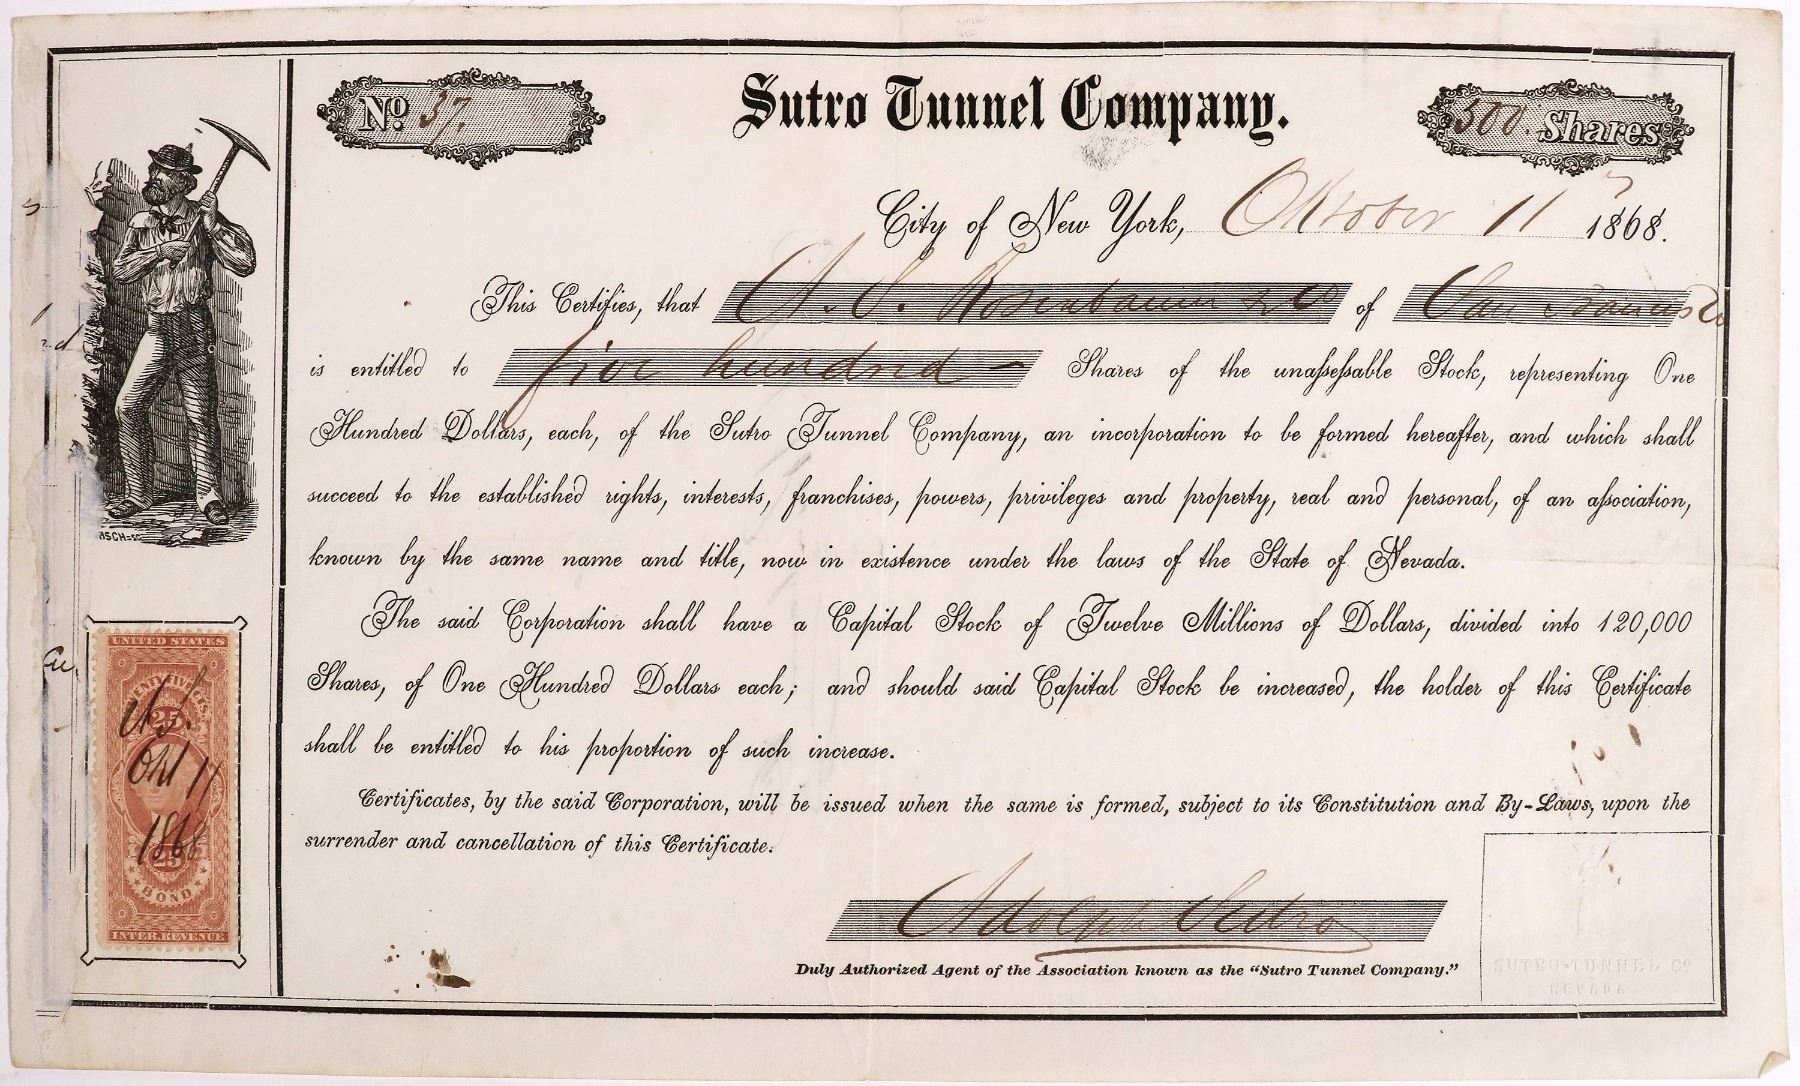 No 37.
Sutro Tunnel Company.
500. Shares
City of New York, Oktober 11 1868.
This Certifies, that A. S. Rosenbaum & Co of San Francisco
is entitled to five hundred — Shares of the unaſseſsable Stock, representing One
Hundred Dollars, each, of the Sutro Tunnel Company, an incorporation to be formed hereafter, and which shall
succeed to the established rights, interests, franchises, powers, privileges and property, real and personal, of an aſsociation,
known by the same name and title, now in existence under the laws of the State of Nevada.
The said Corporation shall have a Capital Stock of Twelve Millions of Dollars, divided into 120,000
Shares, of One Hundred Dollars each; and should said Capital Stock be increased, the holder of this Certificate
shall be entitled to his proportion of such increase.
Certificates, by the said Corporation, will be issued when the same is formed, subject to its Constitution and By-Laws, upon the
surrender and cancellation of this Certificate.
Adolph Sutro
Duly Authorized Agent of the Association known as the "Sutro Tunnel Company."
SUTRO·TUNNEL Co
NEVADA
UNITED STATES
TWENTY FIVE CTS.
25
A.S.
Okt 11
1868
25
BOND
INTER. REVENUE